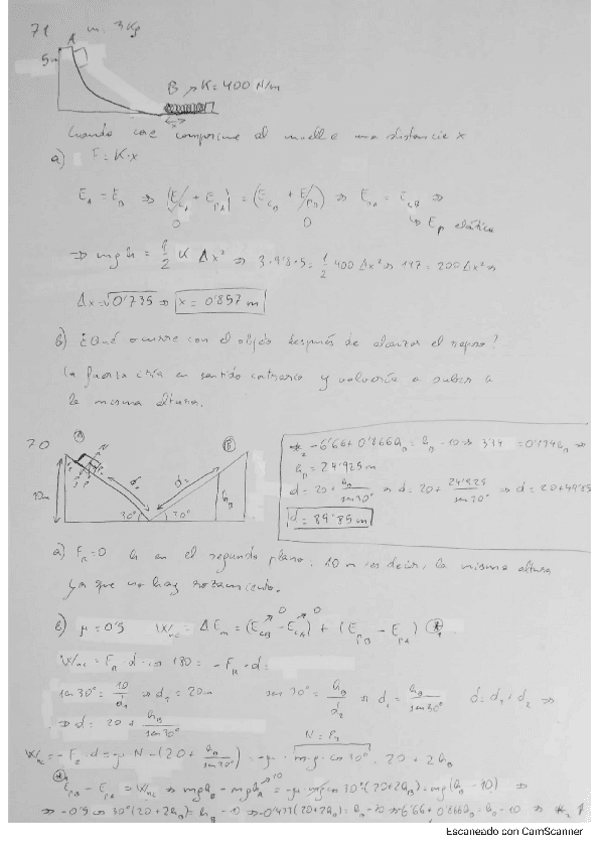 71 m: 3 Kg
A
5m
B → K = 400 N/m
x
Cuando cae comprime el muelle una distancia x
a) F = K·x
E_A = E_B ⇒ (E_cA + E_pA) = (E_cB + E_pB) ⇒ E_pA = E_pB ⇒
0 0 ↳ E_p elástica
⇒ mgh = 1/2 K Δx² ⇒ 3·9'8·5 = 1/2 400 Δx² ⇒ 147 = 200 Δx² ⇒
Δx = √0'735 ⇒ x = 0'857 m
b) ¿Qué ocurre con el objeto después de alcanzar el reposo?
La fuerza iría en sentido contrario y volvería a subir a
la misma altura.
70
A B
10m d₁ d₂ h_B
30° 30°
* -6'66+0'866h_B = h_B - 10 ⇒
h_B = 24'925 m
d = 20 + h_B/sen30° ⇒ d = 20 + 24'925/sen30° ⇒ d = 20+49'85
d = 89'85 m
a) F_R = 0 h en el segundo plano: 10 m es decir, la misma altura
ya que no hay rozamiento.
b) W_nc = ΔE_m = (E_cB - E_cA) + (E_pB - E_pA) *
0 0
W_nc = F_R · d · cos 180 = -F_R · d
sen 30° = 10/d₁ ⇒ d₁ = 20m sen 30° = h_B/d₂ ⇒ = h_B/sen30° d = d₁ + d₂ ⇒
⇒ d = 20 + h_B/sen30°
W_nc = -F_R · d = -μ · N · (20 + h_B/sen30°) = -μ · m·g·cos 30° · 20 + 2h_B
* E_pB - E_pA = W_nc ⇒ mgh_B - mgh_A = -μ·mg·cos 30°(20+2h_B) = mg(h_B - 10) ⇒
10